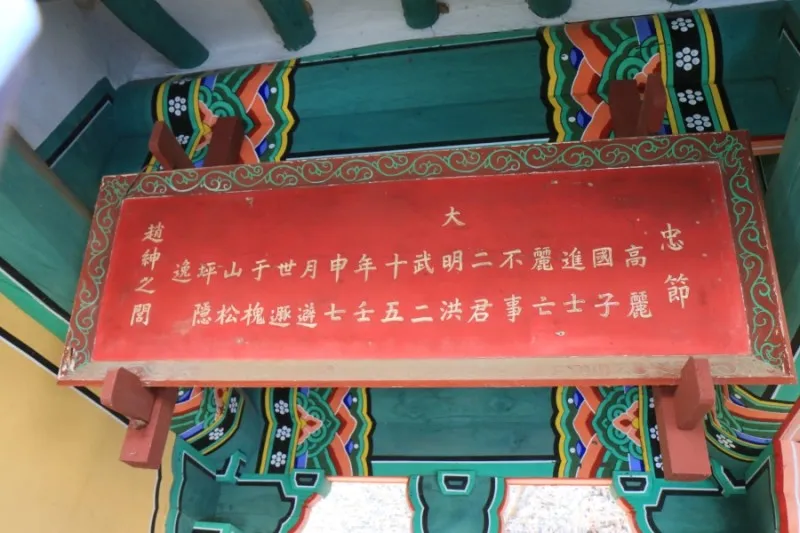 忠節
高麗
國子
進士
麗亡
不事
二君
大明洪
武二
十五
年壬
申七
月避
世遯
于槐
山松
坪隱
逸
趙紳之閭